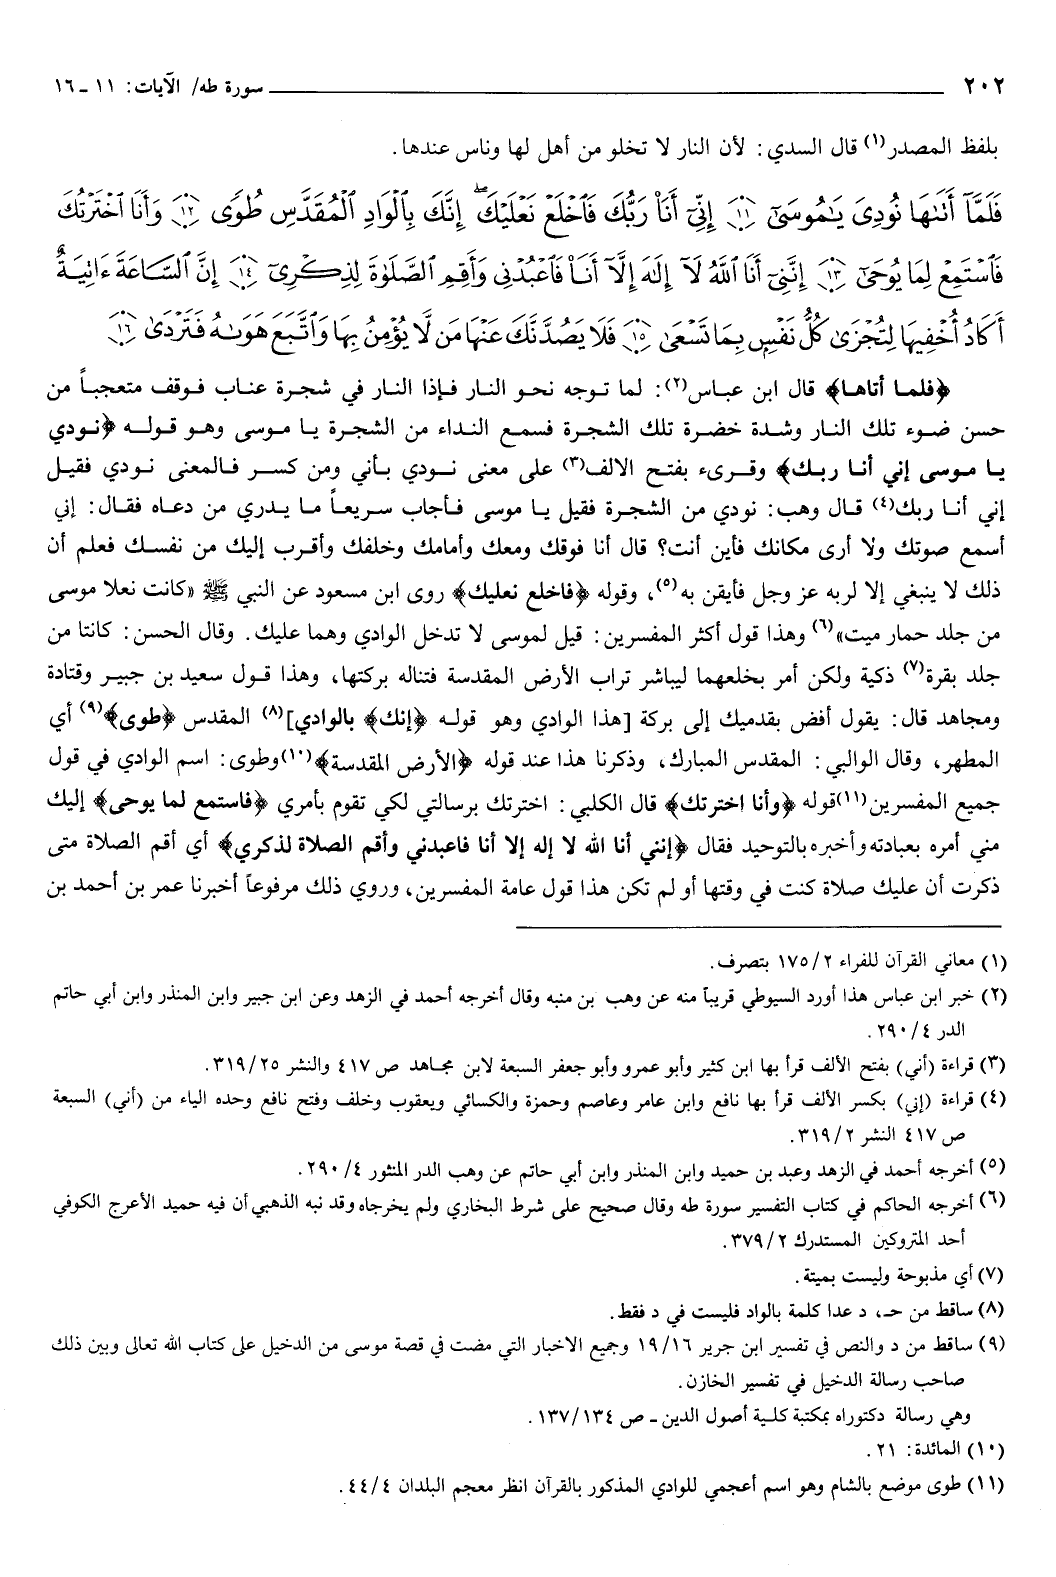 ٢٠٢ سورة طه/ الآيات: ١١ ـ ١٦
بلفظ المصدر(١) قال السدي: لأن النار لا تخلو من أهل لها وناس عندها.
فَلَمَّآ أَتَىٰهَا نُودِىَ يَـٰمُوسَىٰٓ ۝١١ إِنِّىٓ أَنَا۠ رَبُّكَ فَٱخْلَعْ نَعْلَيْكَ ۖ إِنَّكَ بِٱلْوَادِ ٱلْمُقَدَّسِ طُوًى ۝١٢ وَأَنَا ٱخْتَرْتُكَ
فَٱسْتَمِعْ لِمَا يُوحَىٰٓ ۝١٣ إِنَّنِىٓ أَنَا ٱللَّهُ لَآ إِلَـٰهَ إِلَّآ أَنَا۠ فَٱعْبُدْنِى وَأَقِمِ ٱلصَّلَوٰةَ لِذِكْرِىٓ ۝١٤ إِنَّ ٱلسَّاعَةَ ءَاتِيَةٌ
أَكَادُ أُخْفِيهَا لِتُجْزَىٰ كُلُّ نَفْسٍۭ بِمَا تَسْعَىٰ ۝١٥ فَلَا يَصُدَّنَّكَ عَنْهَا مَن لَّا يُؤْمِنُ بِهَا وَٱتَّبَعَ هَوَىٰهُ فَتَرْدَىٰ ۝١٦
﴿فلما أتاها﴾ قال ابن عباس(٢): لما توجه نحو النار فإذا النار في شجرة عناب فوقف متعجباً من
حسن ضوء تلك النار وشدة خضرة تلك الشجرة فسمع النداء من الشجرة يا موسى وهو قوله ﴿نودي
يا موسى إني أنا ربك﴾ وقرىء بفتح الالف(٣) على معنى نودي بأني ومن كسر فالمعنى نودي فقيل
إني أنا ربك(٤) قال وهب: نودي من الشجرة فقيل يا موسى فأجاب سريعاً ما يدري من دعاه فقال: إني
أسمع صوتك ولا أرى مكانك فأين أنت؟ قال أنا فوقك ومعك وأمامك وخلفك وأقرب إليك من نفسك فعلم أن
ذلك لا ينبغي إلا لربه عز وجل فأيقن به(٥)، وقوله ﴿فاخلع نعليك﴾ روى ابن مسعود عن النبي ﷺ «كانت نعلا موسى
من جلد حمار ميت»(٦) وهذا قول أكثر المفسرين: قيل لموسى لا تدخل الوادي وهما عليك. وقال الحسن: كانتا من
جلد بقرة(٧) ذكية ولكن أمر بخلعهما ليباشر تراب الأرض المقدسة فتناله بركتها، وهذا قول سعيد بن جبير وقتادة
ومجاهد قال: يقول أفض بقدميك إلى بركة [هذا الوادي وهو قوله ﴿إنك﴾ بالوادي](٨) المقدس ﴿طوى﴾(٩) أي
المطهر، وقال الوالبي: المقدس المبارك، وذكرنا هذا عند قوله ﴿الأرض المقدسة﴾(١٠)وطوى: اسم الوادي في قول
جميع المفسرين(١١)قوله ﴿وأنا اخترتك﴾ قال الكلبي: اخترتك برسالتي لكي تقوم بأمري ﴿فاستمع لما يوحى﴾ إليك
مني أمره بعبادته وأخبره بالتوحيد فقال ﴿إنني أنا الله لا إله إلا أنا فاعبدني وأقم الصلاة لذكري﴾ أي أقم الصلاة متى
ذكرت أن عليك صلاة كنت في وقتها أو لم تكن هذا قول عامة المفسرين، وروي ذلك مرفوعاً أخبرنا عمر بن أحمد بن
(١) معاني القرآن للفراء ١٧٥/٢ بتصرف.
(٢) خبر ابن عباس هذا أورد السيوطي قريباً منه عن وهب بن منبه وقال أخرجه أحمد في الزهد وعن ابن جبير وابن المنذر وابن أبي حاتم
الدر ٢٩٠/٤.
(٣) قراءة (أني) بفتح الألف قرأ بها ابن كثير وأبو عمرو وأبو جعفر السبعة لابن مجاهد ص ٤١٧ والنشر ٣١٩/٢٥.
(٤) قراءة (إني) بكسر الألف قرأ بها نافع وابن عامر وعاصم وحمزة والكسائي ويعقوب وخلف وفتح نافع وحده الياء من (أني) السبعة
ص ٤١٧ النشر ٣١٩/٢.
(٥) أخرجه أحمد في الزهد وعبد بن حميد وابن المنذر وابن أبي حاتم عن وهب الدر المنثور ٢٩٠/٤.
(٦) أخرجه الحاكم في كتاب التفسير سورة طه وقال صحيح على شرط البخاري ولم يخرجاه وقد نبه الذهبي أن فيه حميد الأعرج الكوفي
أحد المتروكين المستدرك ٣٧٩/٢.
(٧) أي مذبوحة وليست بميتة.
(٨) ساقط من حـ، د عدا كلمة بالواد فليست في د فقط.
(٩) ساقط من د والنص في تفسير ابن جرير ١٩/١٦ وجميع الاخبار التي مضت في قصة موسى من الدخيل على كتاب الله تعالى وبين ذلك
صاحب رسالة الدخيل في تفسير الخازن.
وهي رسالة دكتوراه بمكتبة كلية أصول الدين ـ ص ١٣٧/١٣٤.
(١٠) المائدة: ٢١.
(١١) طوى موضع بالشام وهو اسم أعجمي للوادي المذكور بالقرآن انظر معجم البلدان ٤٤/٤.